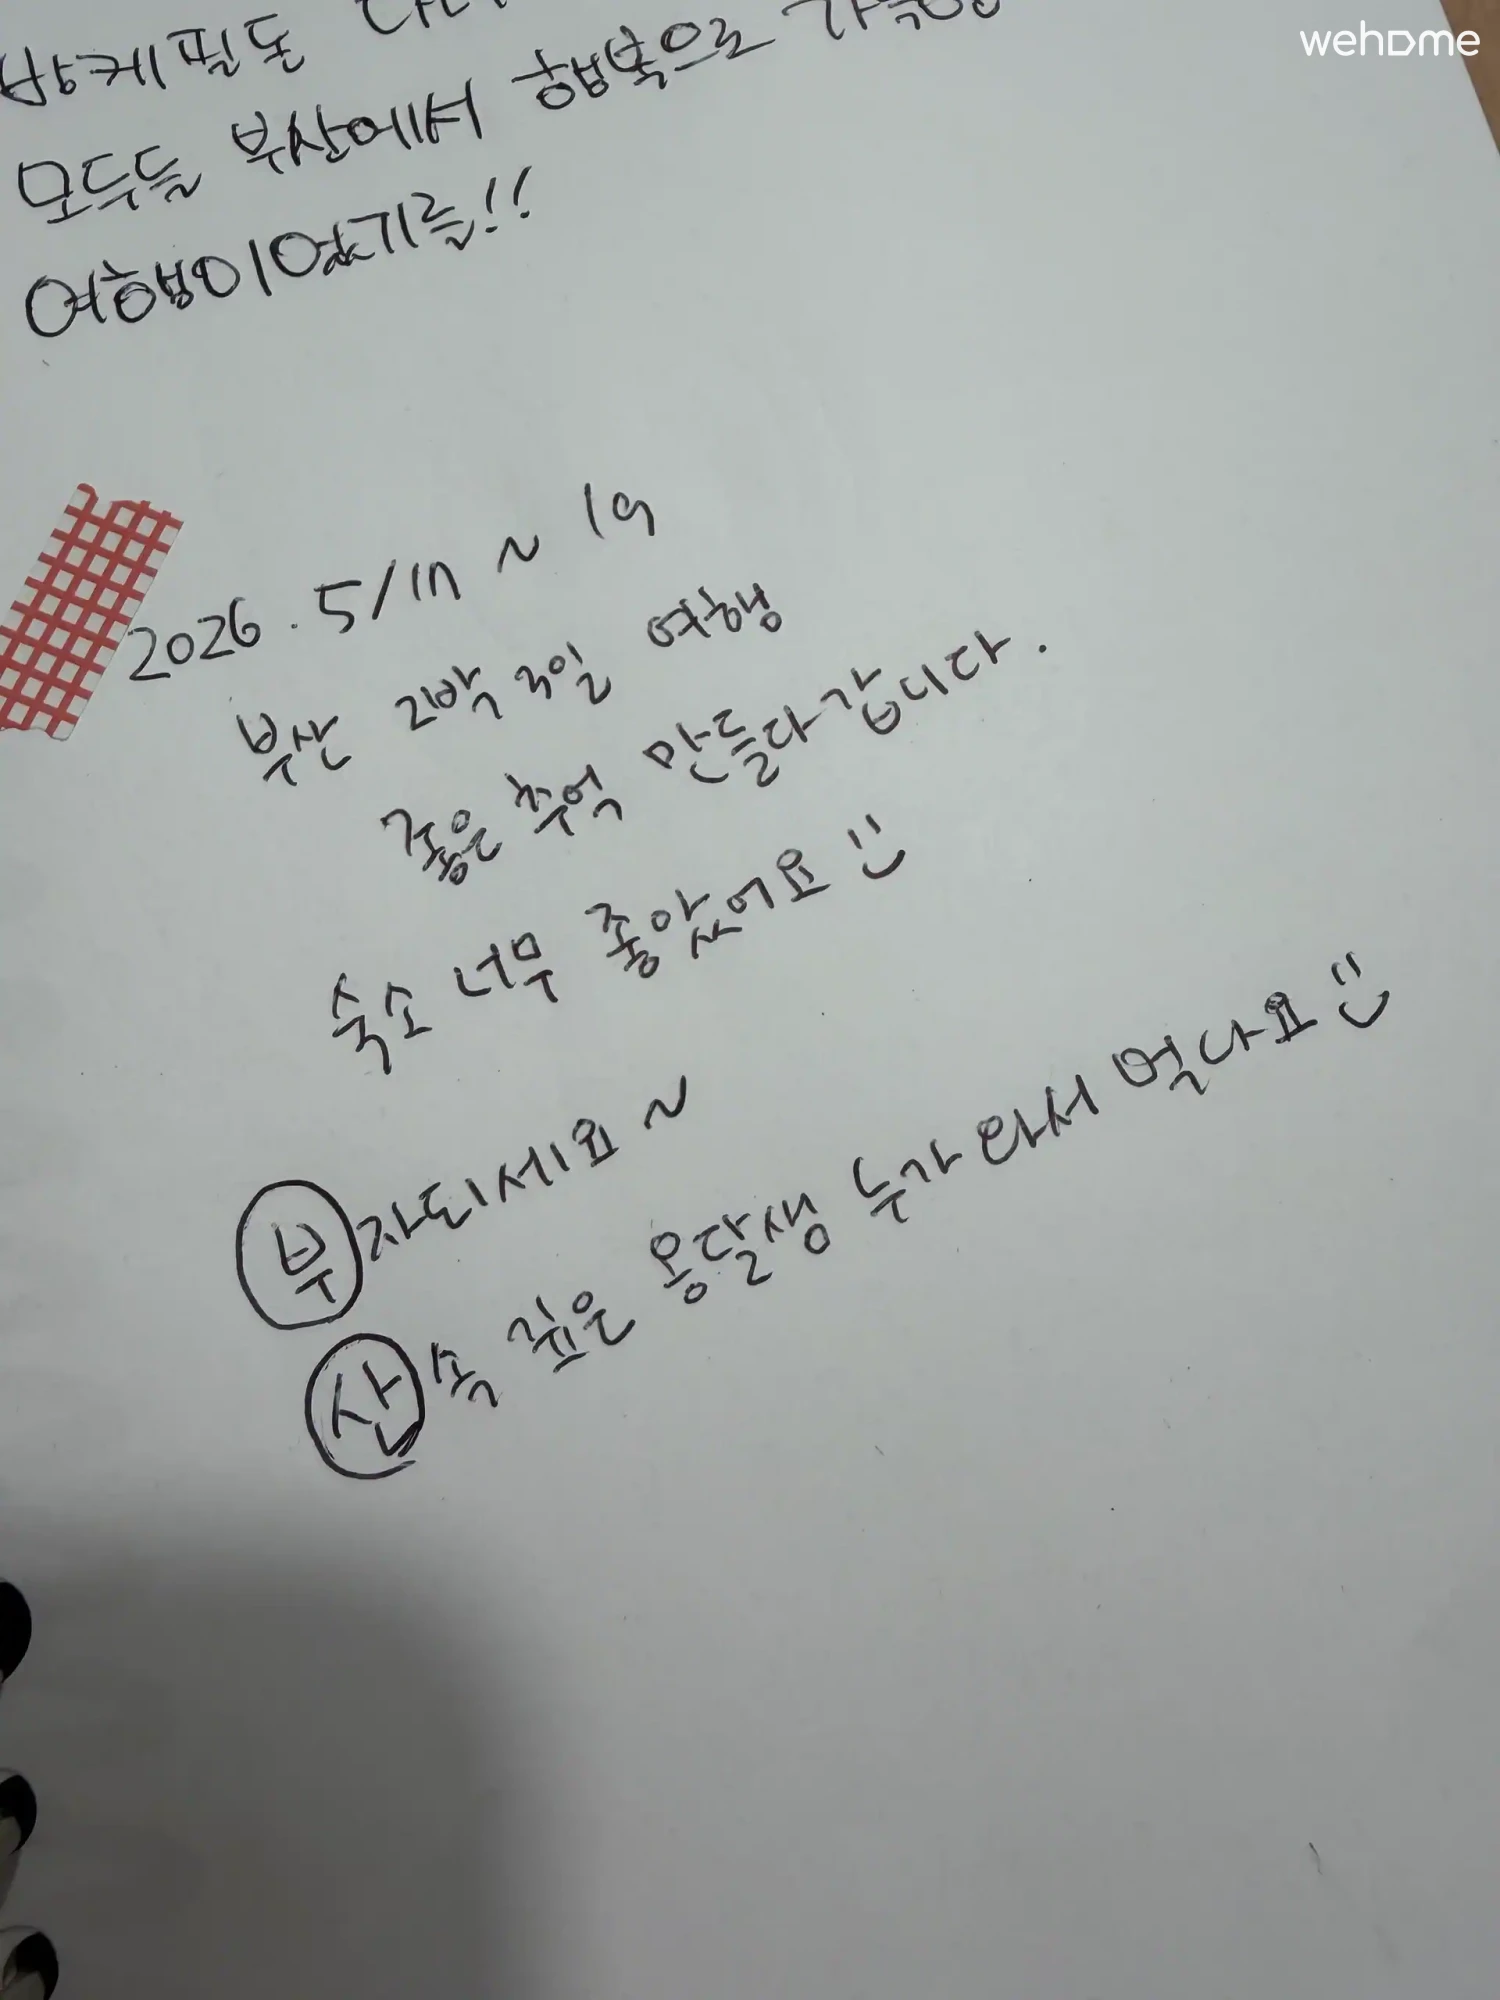 wehome
방케필도
모두들 부산에서 행복으로 가득한
여행이였기를!!
2026. 5/17 ~ 19
부산 2박 3일 여행
좋은 추억 만들다 갑니다.
숙소 너무 좋았어요
부자되세요~
산속 깊은 옹달샘 누가 와서 먹나요